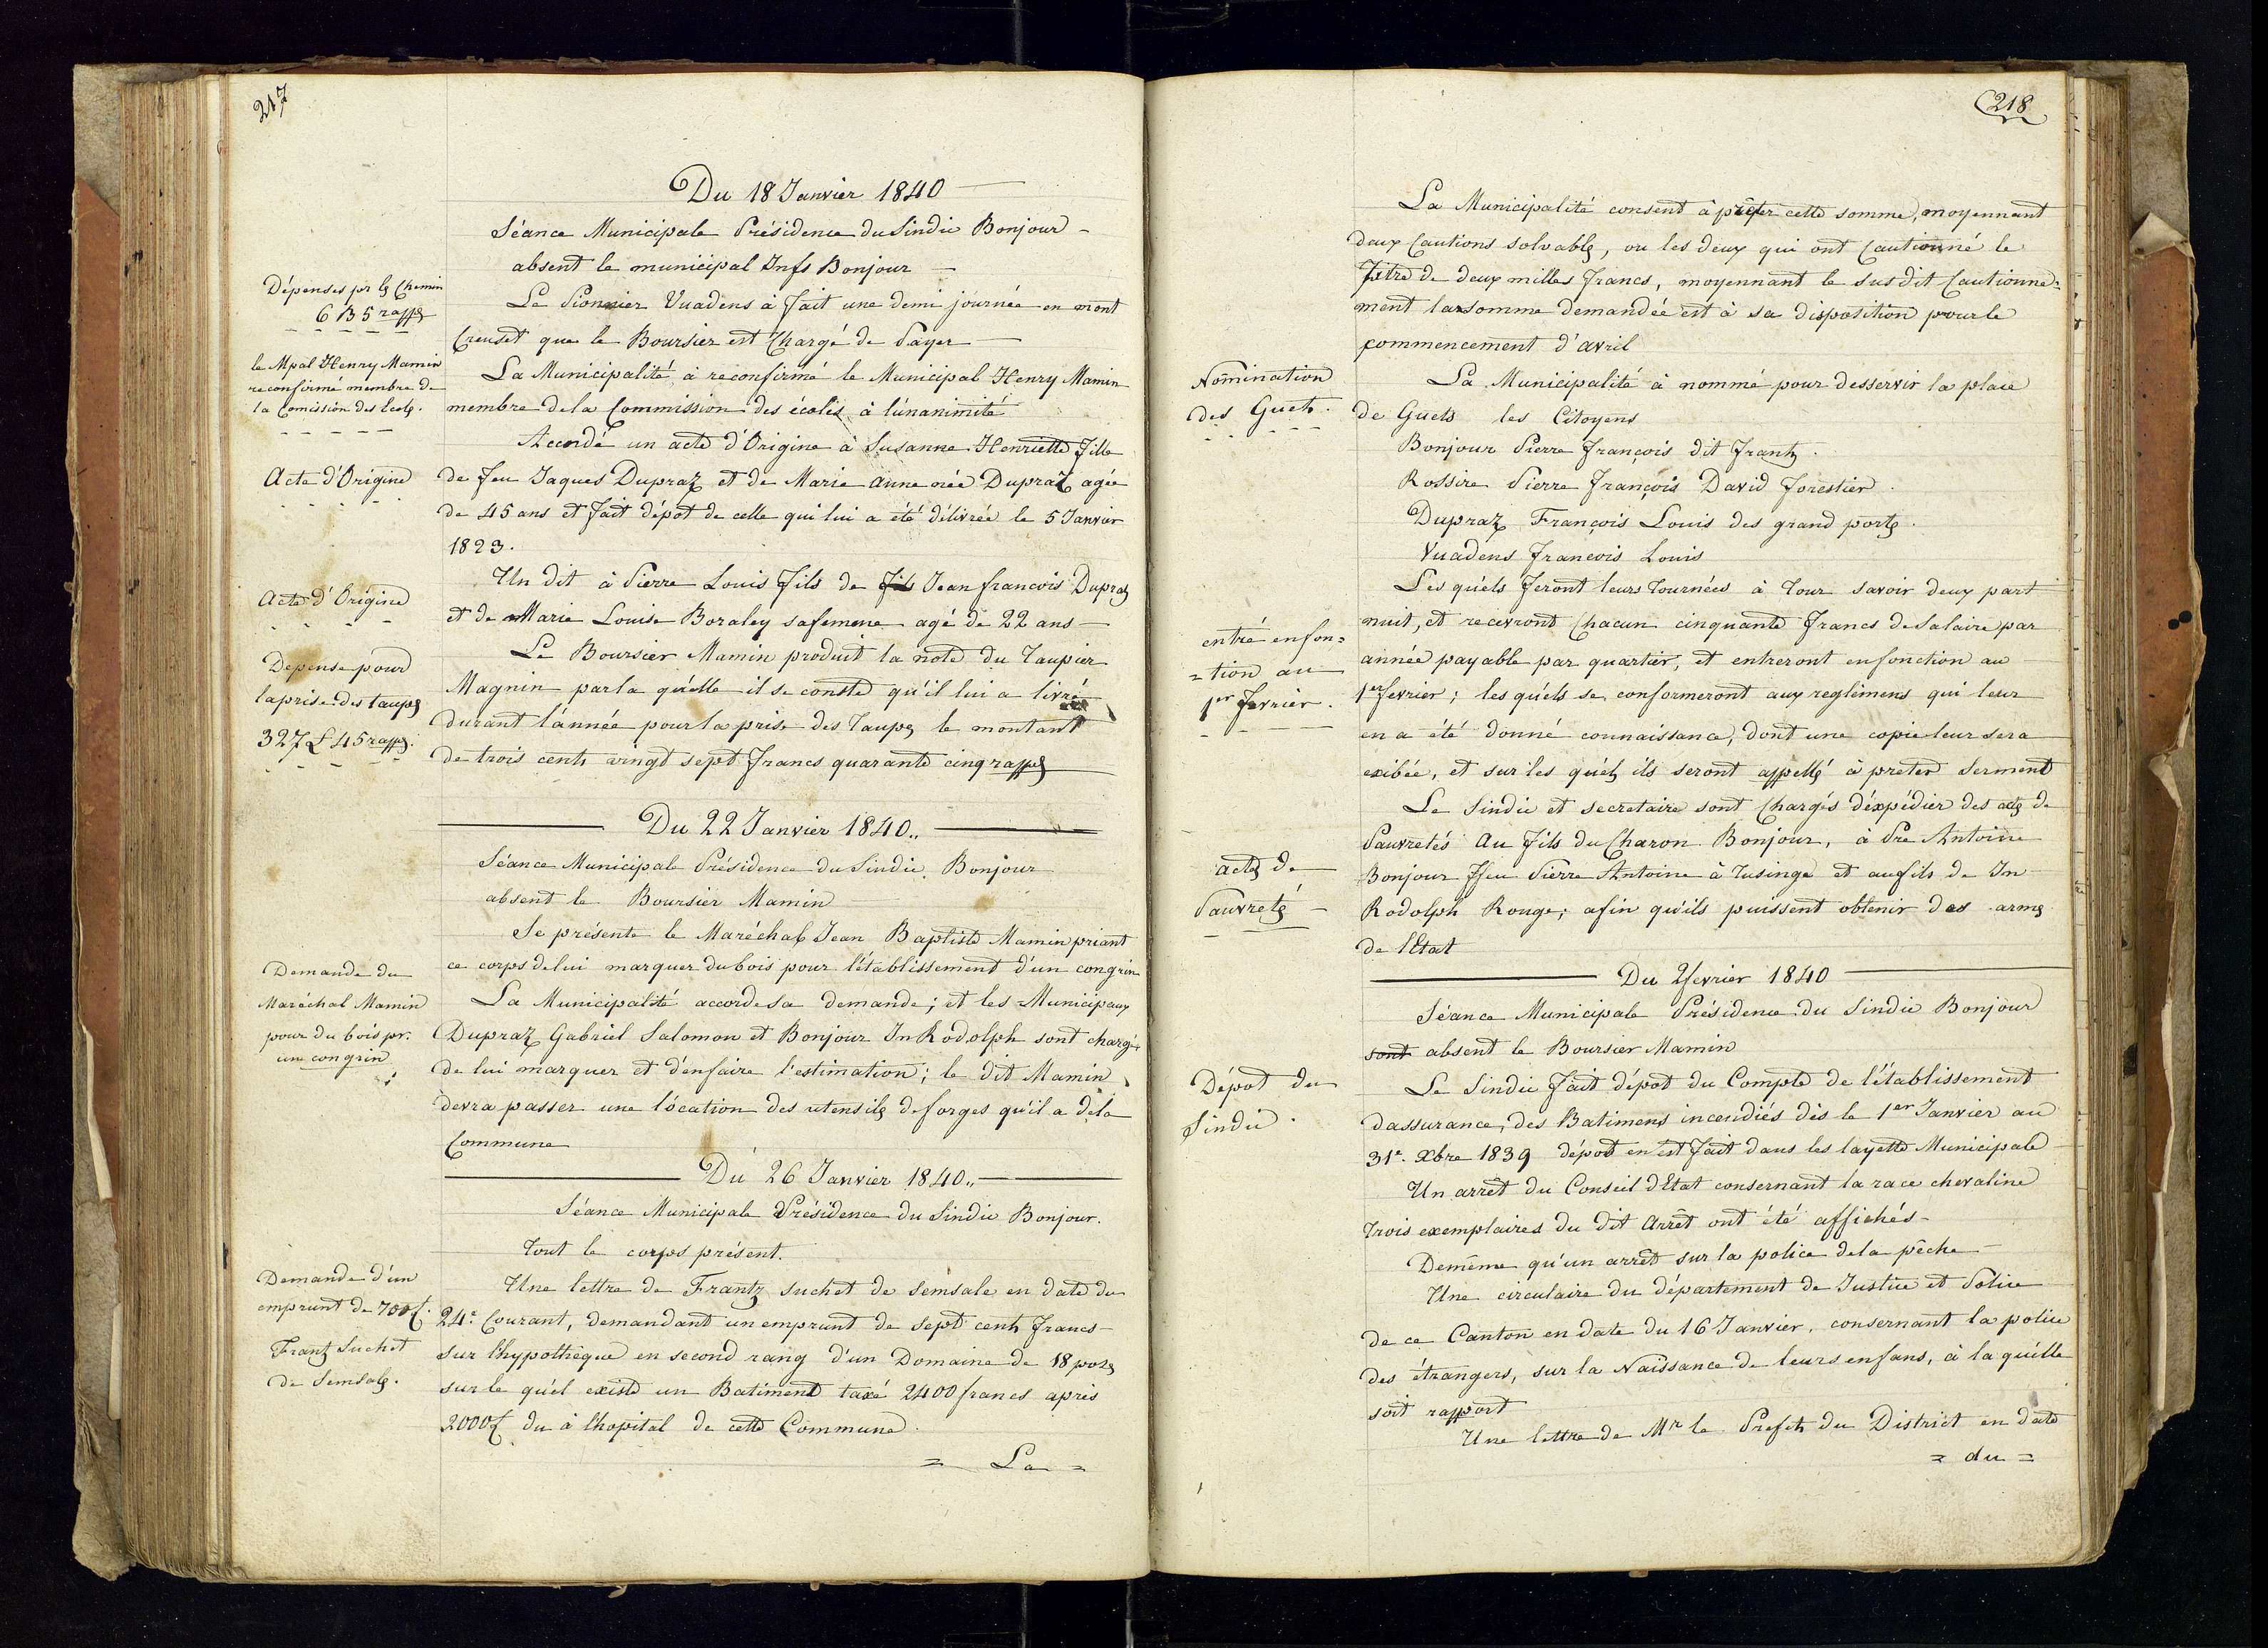 217
Du 18 Janvier 1840
Séance Municipale Présidence du Sindic Bonjour
absent le municipal Bonjour
Dépenses pr les Chemin
6 B 5 rapps
Le Pionnier Vuadens à fait une demi journée en mont
Creuset que le Boursier est Chargé de Payer
le Mpal Henry Mamin
reconfirmé membre de
la Comission des Ecoles.
La Municipalité à reconfirmé le Municipal Henry Mamin
membre de la Commission des écoles à lúnanimité
Acte d'Origine
Accordé un acte d'Origine à Susanne Henriette fille
de feu Jaques Dupraz et de Marie Anne née Dupraz agée
de 45 ans et fait dépot de celle qui lui a été délivrée le 5 Janvier
1823.
Acte d'Origine
Un dit à Pierre Louis fils de fils Jean francois Dupraz
et de Marie Louise Boraley safemme agé de 22 ans
Depense pour
laprise des taupes
327 £ 45 rapps.
Le Boursier Mamin produit la note du Taupier
Magnin parla quélle il se conste qu'il lui a livré
durant lánnée pour la prise des Taupes le montant
de trois cents vingt sept francs quarante cinq rappes
Du 22 Janvier 1840..
Séance Municipale Présidence du Sindic Bonjour
absent le Boursier Mamin
Demande du
Maréchal Mamin
pour du bois pr.
un congrin
Se présente le Maréchal Jean Baptiste Mamin priant
ce corps de lui marquer du bois pour létablissement d'un congrin
La Municipalité accorde sa demande; et les Municipaux
Dupraz Gabriel Salomon et Bonjour Jn Rodolph sont chargés
de lui marquer et dénfaire l'estimation; le dit Mamin
devra passer une lócation des utensiles de forges qu'il a dela
Commune
Du 26 Janvier 1840..
Séance Municipale Présidence du Sindic Bonjour.
Tout le corps présent.
Demande d'un
emprunt de 700 f.
Frantz Suchet
de Semsales.
Une lettre de Frantz Suchet de Semsale en date du
24e. Courant, demandant un emprunt de sept cents francs
sur lhypothèque en second rang d'un Domaine de 18 poses
sur le quél existe un Batiment taxé 2400 francs après
2000 f du à lhopital de cette Commune.
= La =
218
La Municipalité consent à prêter cette somme, moyennant
deux Cautions solvables, ou les deux qui ont Cautionné le
Titre de deux milles francs, moyennant le susdit Cautionne=
ment la somme demandée est à sa disposition pour le
commencement d'avril
Nomination
des Guets.
La Municipalité à nommé pour desservir la place
de Guets les Citoyens
Bonjour Pierre François dit Frantz.
Rossire Pierre François David forestier.
Dupraz François Louis des grand portes.
Vuadens François Louis
entré enfon=
=tion au
1er février.
Les quéls feront leurs Tournées à Tour savoir deux part
nuit, et recevront Chacun cinquante francs de Salaire par
année payable par quartier, et entreront en fonction au
1er fevrier; les quéls se conformeront aux reglémens qui leur
en a été donné connaissance, dont une copie leur sera
exibée, et sur les quéls ils seront appellés à preter Serment
actes de
Pauvretés
Le Sindic et secretaire sont Chargés déxpédier des actes de
Pauvretés Au fils du Charon Bonjour, à Pre Antoine
Bonjour ffeu Pierre Antoine à Tusinge et aufils de Jn
Rodolph Rouge; afin qu'ils puissent obtenir des armes
de lEtat
Du 2 fevrier 1840
Séance Municipale Présidence du Sindic Bonjour
sont absent le Boursier Mamin
Dépot du
Sindic.
Le Sindic fait dépot du Compte de létablissement
dassurance, des Batimens incendiés dès le 1er Janvier au
31e. Xbre 1839 dépot en est fait dans les layette Municipale
Un arrêt du Conseil dEtat consernant la race chevaline
Trois exemplaires du dit Arrêt ont été affichés
Demême qu'un arrêt sur la police dela pêche
Une circulaire du département de Justice et Police
de ce Canton en date du 16 Janvier, consernant la police
des étrangers, sur la Naissance de leurs enfans, à la quélle
soit rapport
Une lettre de Mr le Prefet du District en date
= du =